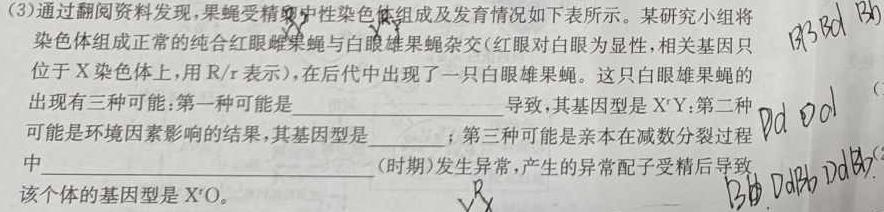 (3)通过翻阅资料发现,果蝇受精卵中性染色体组成及发育情况如下表所示。某研究小组将
染色体组成正常的纯合红眼雌果蝇与白眼雄果蝇杂交(红眼对白眼为显性,相关基因只
位于X染色体上,用R/r表示),在后代中出现了一只白眼雄果蝇。这只白眼雄果蝇的
出现有三种可能:第一种可能是____________________导致,其基因型是XʳY;第二种
可能是环境因素影响的结果,其基因型是________;第三种可能是亲本在减数分裂过程
中________________________________(时期)发生异常,产生的异常配子受精后导致
该个体的基因型是XʳO。
Bb
Dd Dd
Bb DdBb DdBb